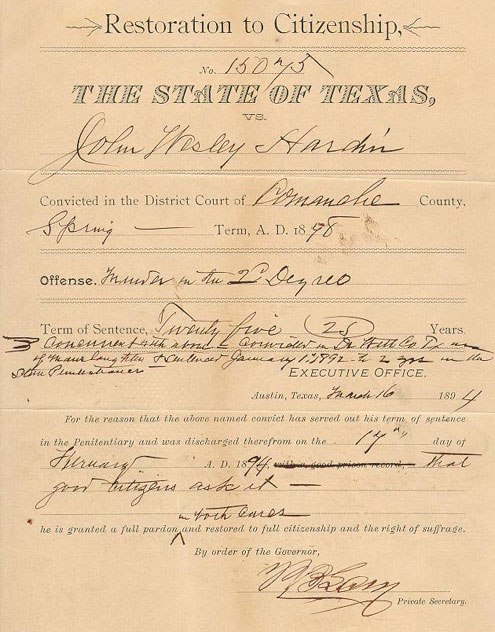 Restoration to Citizenship,
No. 15075
THE STATE OF TEXAS,
VS.
John Wesley Hardin
Convicted in the District Court of Comanche County,
Spring — Term, A. D. 1878
Offense. Murder in the 2d Degree
Term of Sentence, Twenty five (25) Years.
Concurrent with above — Convicted in De Witt Co Tx
of manslaughter & sentenced January 1 1892 to 2 yrs in the
State Penitentiary —
EXECUTIVE OFFICE.
Austin, Texas, March 16 1894
For the reason that the above named convict has served out his term of sentence
in the Penitentiary and was discharged therefrom on the 17" day of
February A. D. 1894, with a good prison record, — that
good citizens ask it —
in both cases
he is granted a full pardon and restored to full citizenship and the right of suffrage.
By order of the Governor,
Private Secretary.